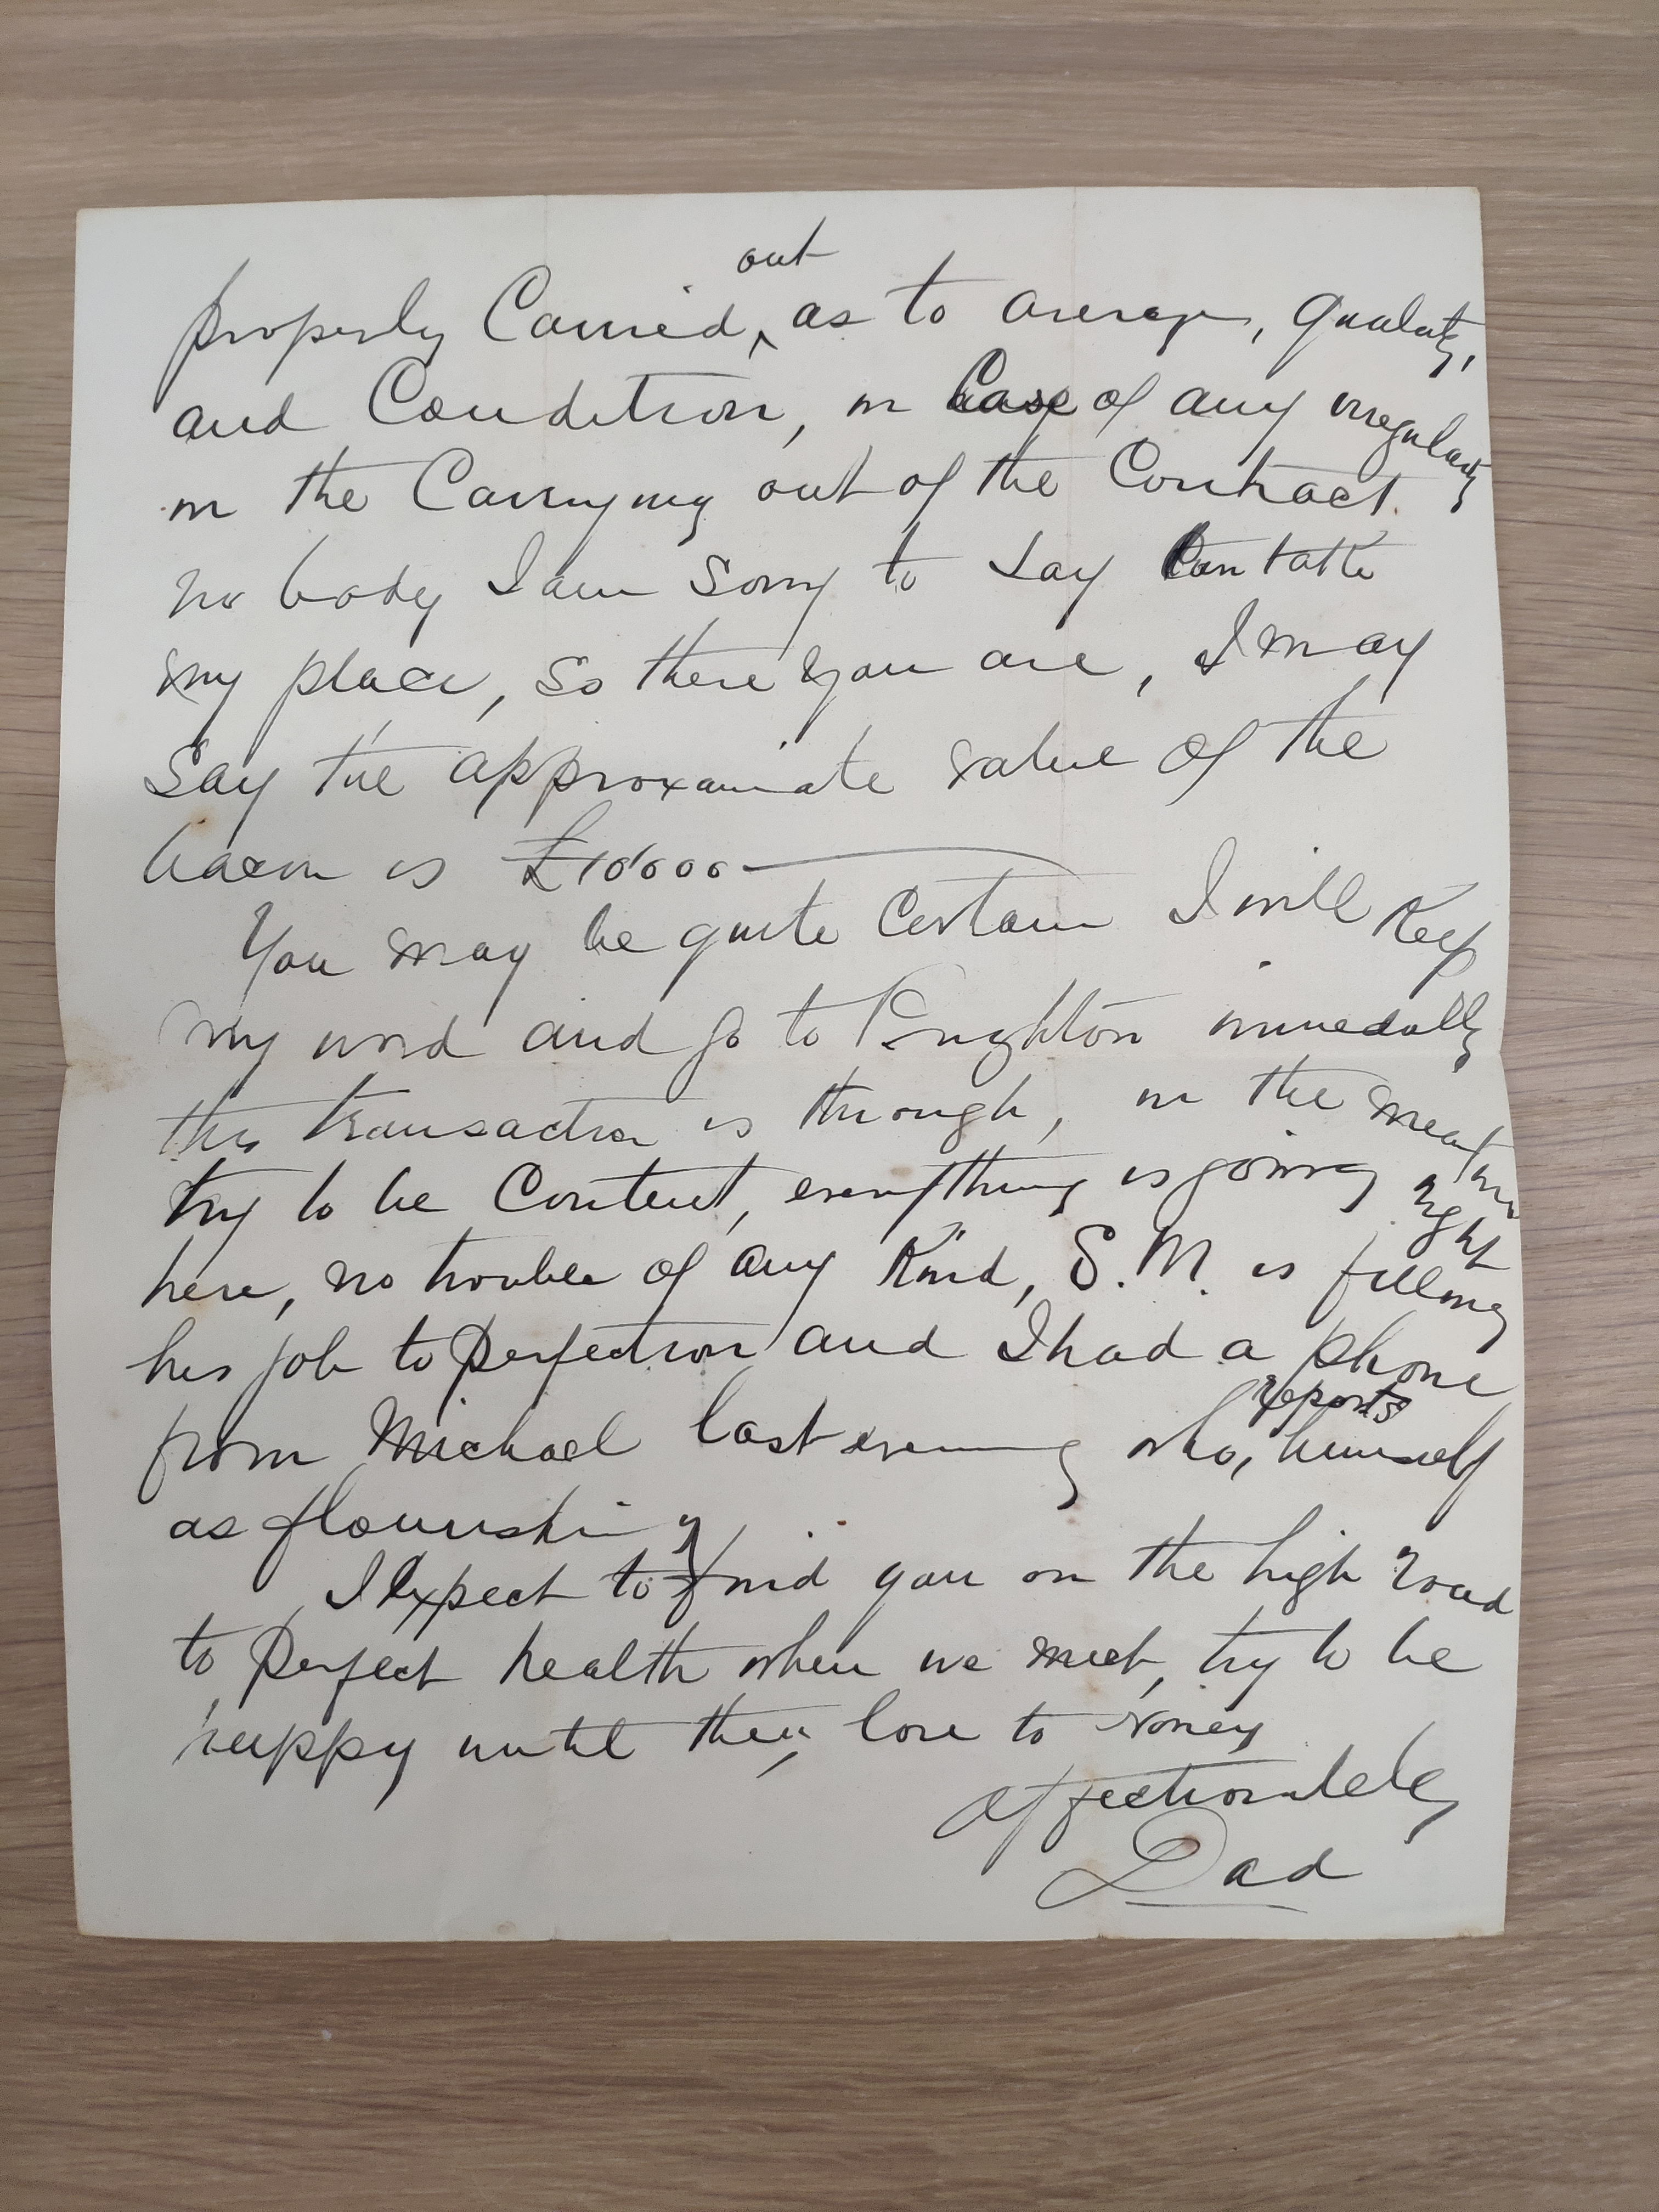 properly Carried out, as to average, quality,
and Condition, in Case of any irregularity
in the Carrying out of the Contract.
no body I am sorry to say Can take
my place, so there you are, I may
say the approximate value of the
bacon is £10'000
You may be quite Certain I will Keep
my word and go to Brighton immediatly
this transaction is through, in the meantime
try to be Content, everything is going right
here, no trouble of any Kind, S.M. is filling
his job to perfection and I had a phone
from Michael last evening who, reports himself
as flourishing
I Expect to find you on the high road
to perfect health when we meet, try to be
happy until then, love to Noney
affectionately
Dad